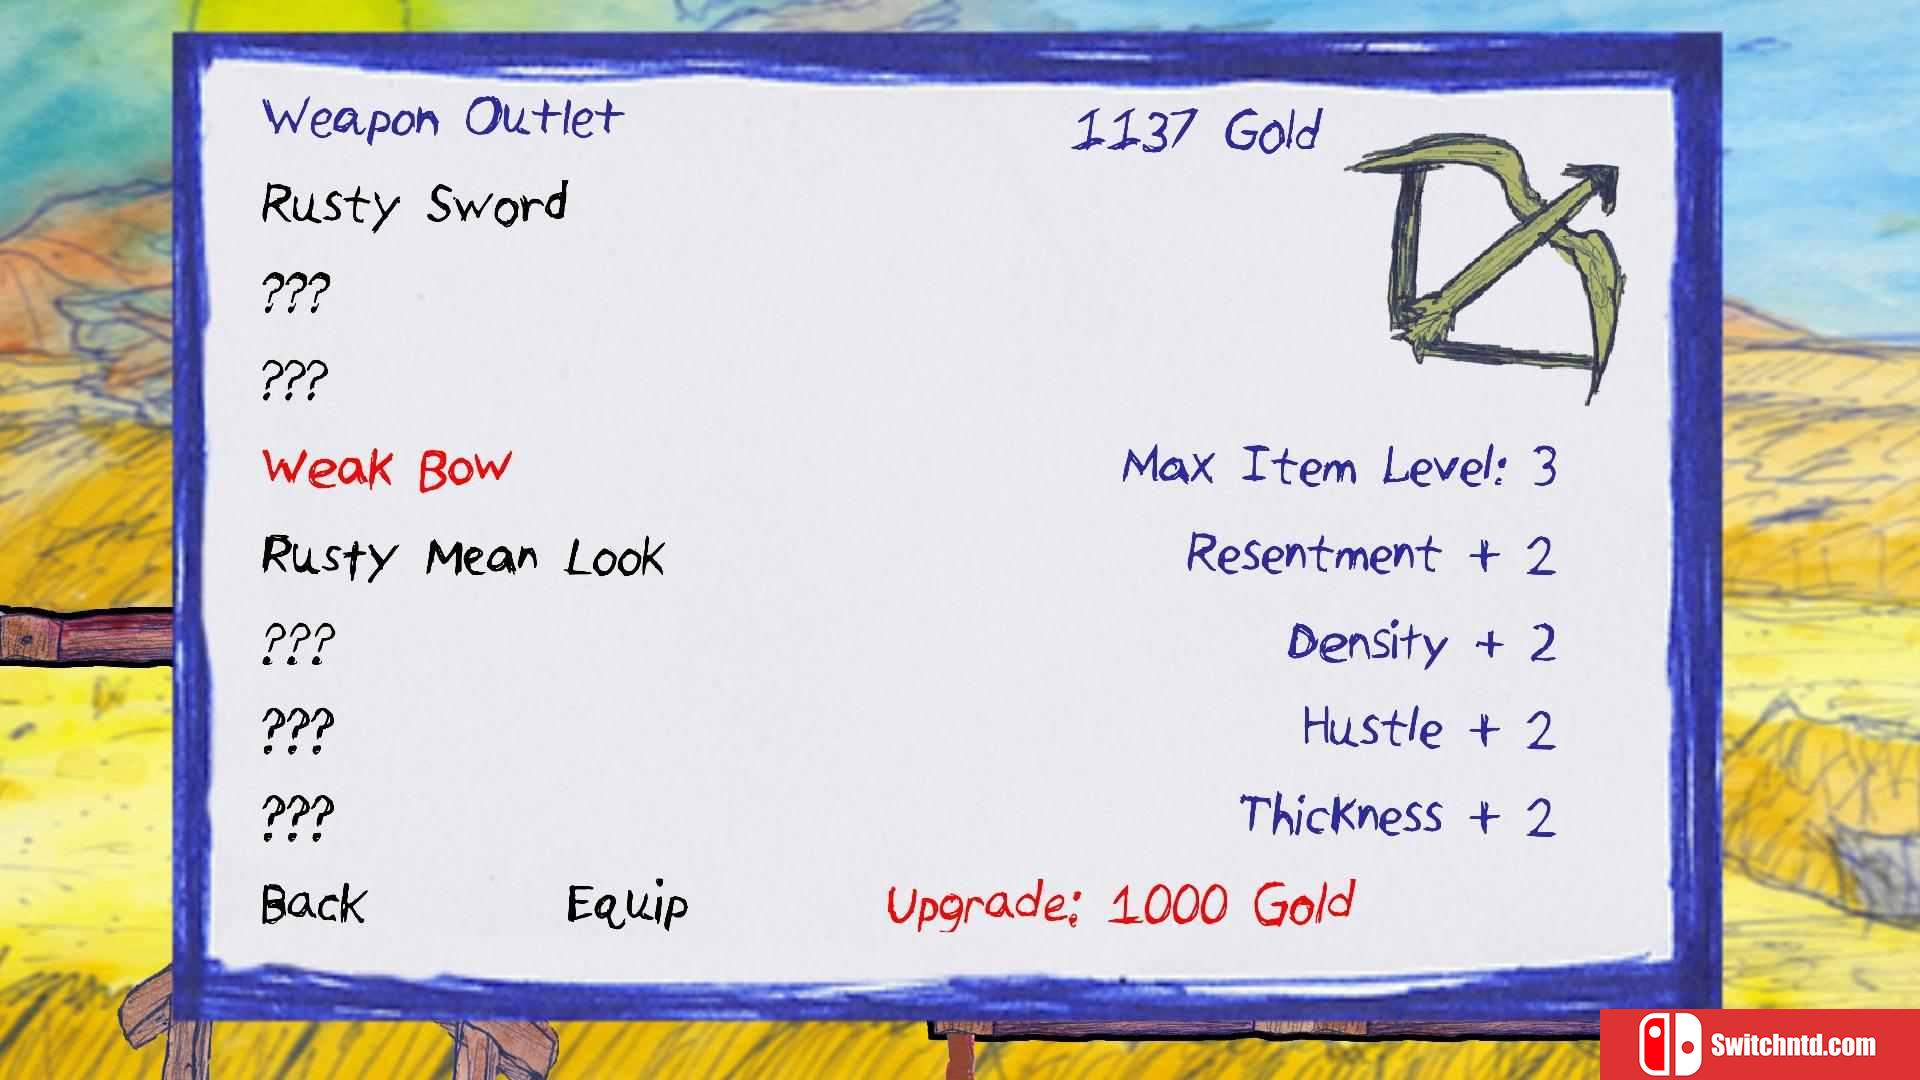 Weapon Outlet 1137 Gold
Rusty Sword
???
???
Weak Bow Max Item Level: 3
Rusty Mean Look Resentment + 2
??? Density + 2
??? Hustle + 2
??? Thickness + 2
Back Equip Upgrade: 1000 Gold
Switchntd.com